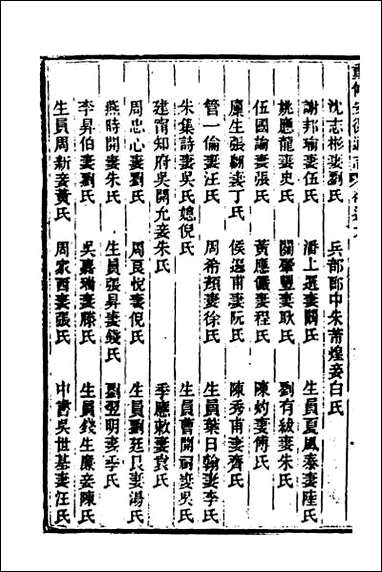 重修安徽通志
沈志彬妻劉氏　兵部郎中朱莆煌妾白氏
謝邦瑜妻伍氏　潘上選妻闞氏　生員夏風泰妻陸氏
姚應龍妻史氏　闞肇豐妻耿氏　劉有紱妻朱氏
伍國諭妻張氏　黃應儀妻程氏　陳妁妻傅氏
廩生張翮妻丁氏　候選甫妻阮氏　陳秀甫妻齊氏
管一倫妻汪氏　周希頖妻徐氏　生員葉日翰妻李氏
朱集詩妻吳氏媳倪氏　生員曹開嗣妾吳氏
建甯知府吳開允妾朱氏　季應敕妻袁氏
周忠心妻劉氏　周良悅妻倪氏　生員劉廷良妻湯氏
燕時開妻朱氏　生員張昇妻錢氏　劉翌明妻李氏
李昇伯妻劉氏　吳嘉瑞妻滕氏　生員錢生廉妾陳氏
生員周新妾黃氏　周家酉妻張氏　中書吳世基妻汪氏